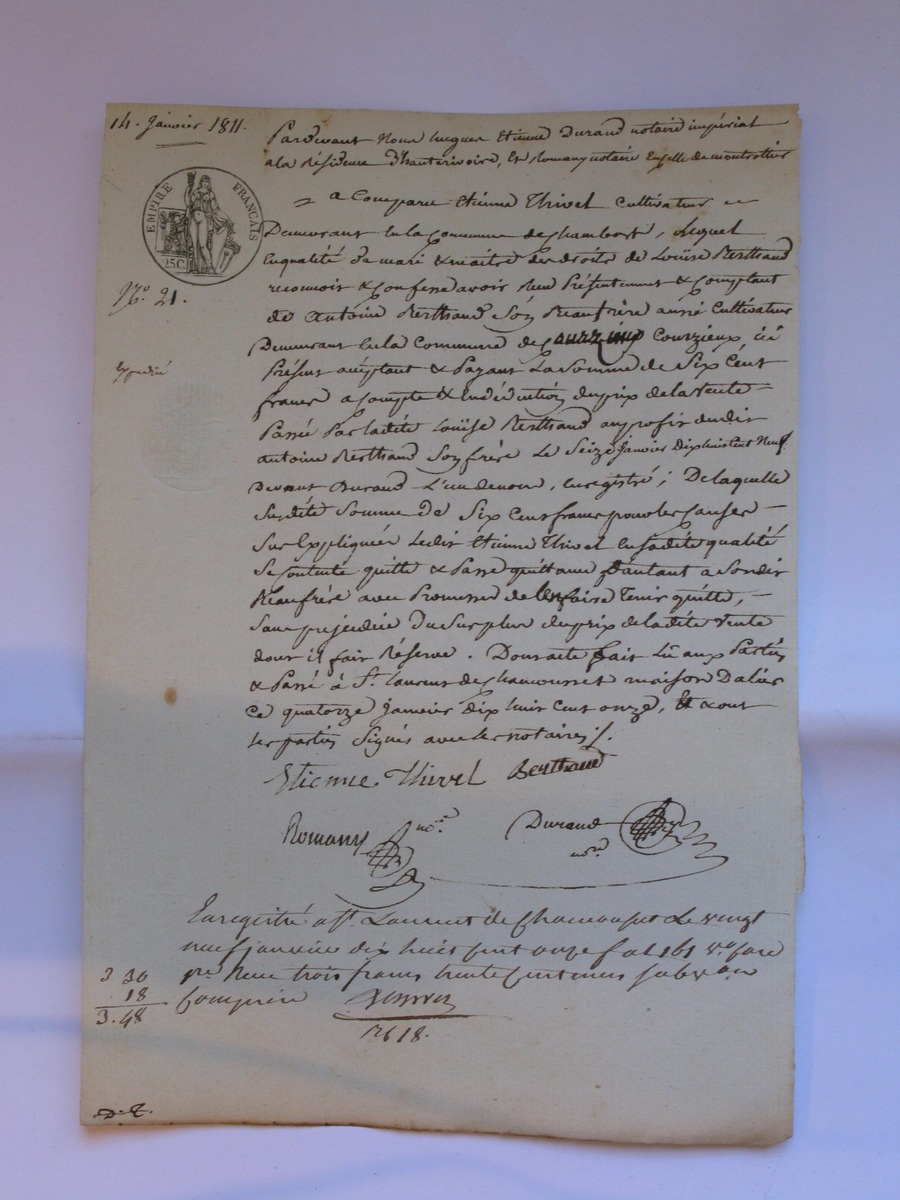 14. Janvier 1811.
Pardevant Nous Hugues Etienne Durand notaire impérial
a la Résidence d'hauterivoire, Et Romany notaire En celle de montrottier
EMPIRE FRANÇAIS
25 C
a Comparu Etienne Thivel Cultivateur
Demeurant En la Commune de Chambost, Lequel
En qualité de mari & maitre des droits de Louise Berthaud
reconnoit & Confesse avoir Reçu Présentement & Comptant
N.o 21.
de Antoine Berthaud Son Beaufrère aussi Cultivateur
Demeurant En la Commune de Courzieux, ici
Expedié
Présent acceptant & Payant La Somme de Six Cent
francs a compte & En déduction du prix de la vente
Passé Par ladite Louise Berthaud au profit dudit
Antoine Berthaud Son frère Le Seize Janvier dix huit Cent Neuf
Devant Durand L'un de nous, Enregistré ; De laquelle
Susdite Somme de Six Cent francs pour les Causes
Sus Expliquées Ledit Etienne Thivel En sadite qualité
Se Contente quitte & Passe quittance d'autant a Son dit
Beaufrère avec Promesse de l'En faire tenir quitte,
Sans prejudice Du Surplus du prix de ladite Vente
dont il fait Réserve. Dont acte fait Lû aux Parties
& Passé à St. Laurent de Chamousset maison Dalier
ce quatorze Janvier Dix huit Cent onze, Et & ont
Les parties Signés avec les notaires ./.
Etienne Thivel Berthaud
Romany no.re Durand no.re
Enregistré a St. Laurent de Chamousset le vingt
neuf janvier dix huit cent onze fol 161 v.o case
pre. Reçu trois francs trente centimes subvon
comprise
3 30
18
3. 48
2618.
D. T.